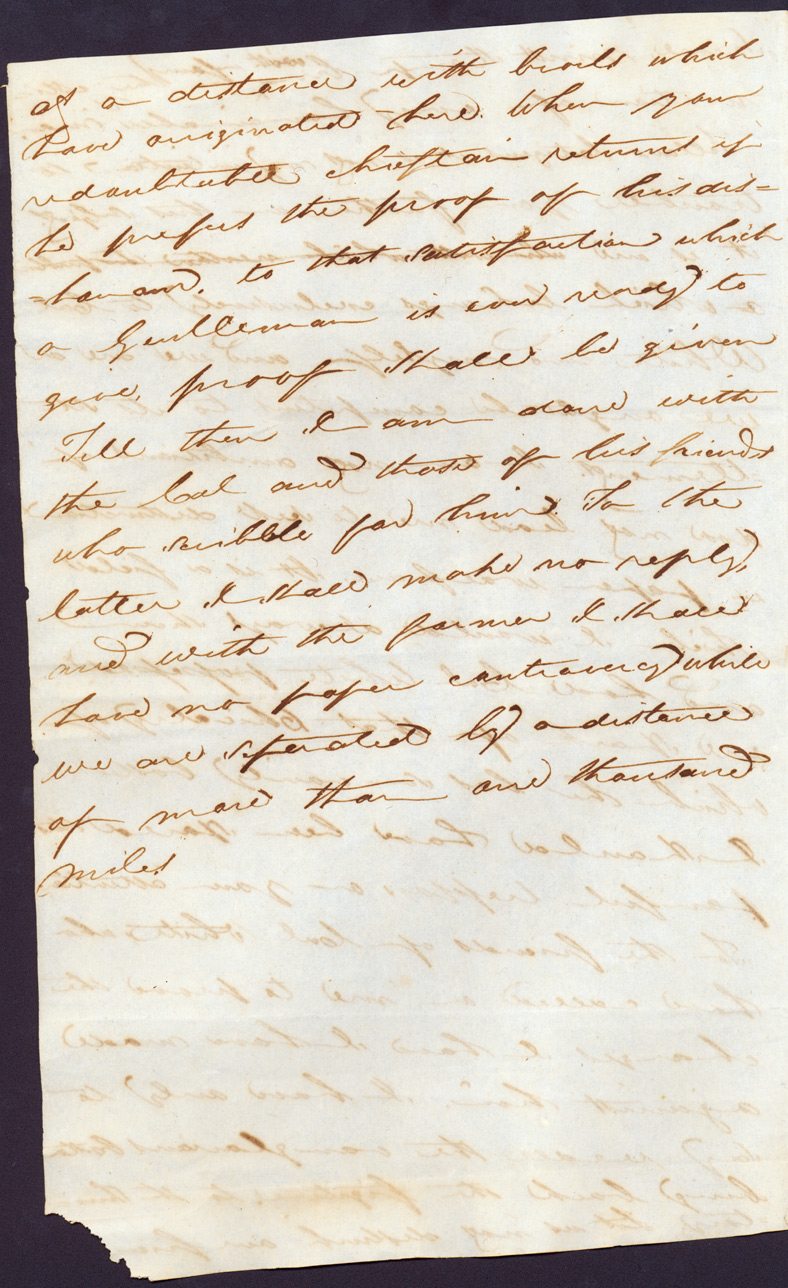 at a distance with broils which
have originated here. When your
redoubtable chieftain returns if
he prefers the proof of his dis=
=honour, to that satisfaction which
a Gentleman is ever ready to
give, proof shall be given
Till then I am done with
the Col and those of his friends
who scribble for him. To the
latter I shall make no reply,
and with the former I shall
have no paper controversy while
we are seperated by a distance
of more than one thousand
miles